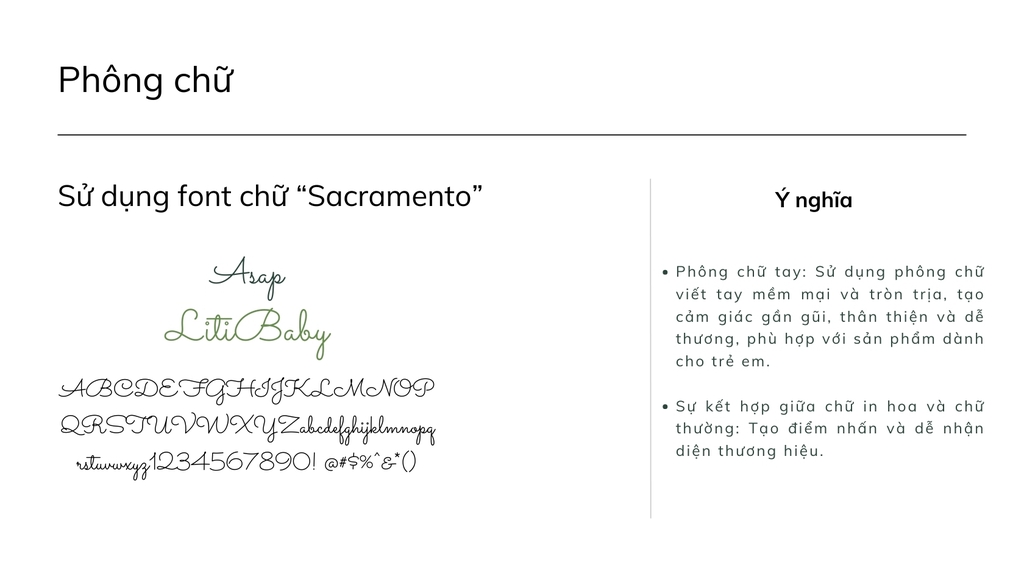 Phông chữ
Sử dụng font chữ “Sacramento”
Asap
LitiBaby
ABCDEFGHIJKLMNOP
QRSTUVWXYZabcdefghijklmnopq
rstuvwxyz1234567890! @#$%^&*()
Ý nghĩa
• Phông chữ tay: Sử dụng phông chữ
viết tay mềm mại và tròn trịa, tạo
cảm giác gần gũi, thân thiện và dễ
thương, phù hợp với sản phẩm dành
cho trẻ em.
• Sự kết hợp giữa chữ in hoa và chữ
thường: Tạo điểm nhấn và dễ nhận
diện thương hiệu.